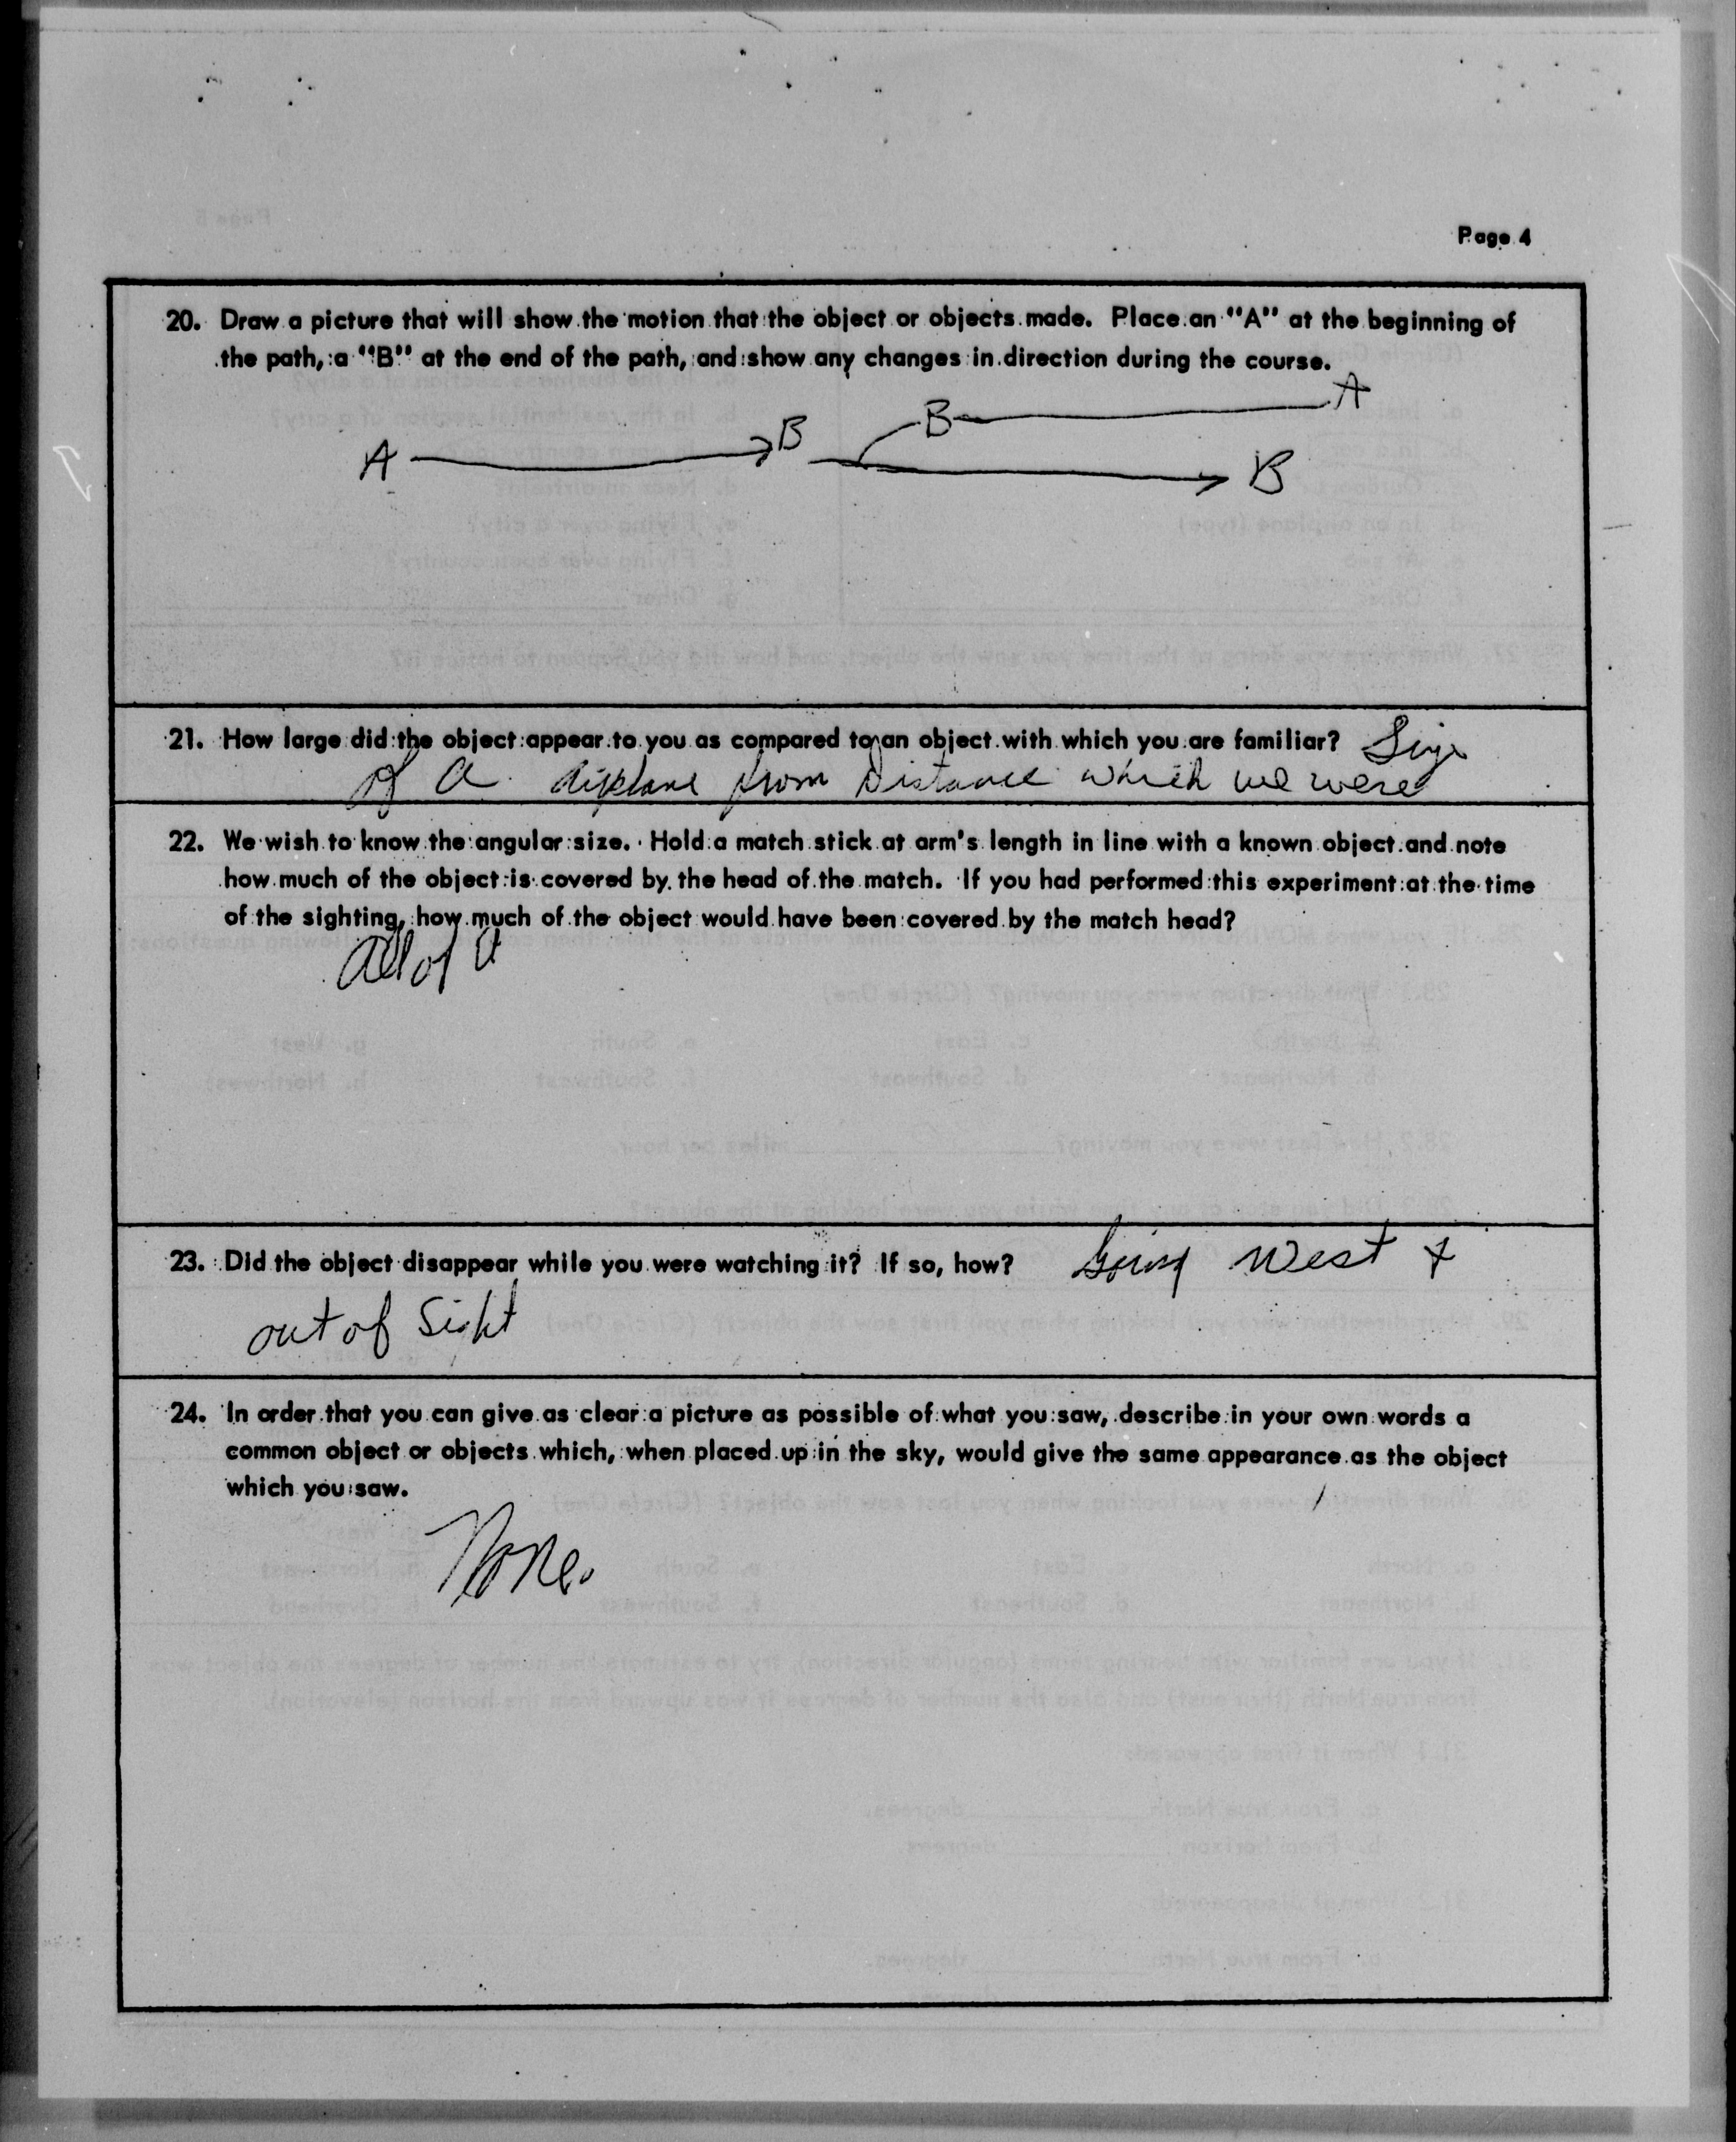 Page 4
20. Draw a picture that will show the motion that the object or objects made. Place an "A" at the beginning of
the path, a "B" at the end of the path, and show any changes in direction during the course.
A B B A
B
21. How large did the object appear to you as compared to an object with which you are familiar? Size
of a airplane from Distance which we were
22. We wish to know the angular size. Hold a match stick at arm's length in line with a known object and note
how much of the object is covered by the head of the match. If you had performed this experiment at the time
of the sighting, how much of the object would have been covered by the match head?
all of it
23. Did the object disappear while you were watching it? If so, how? Going West &
out of Sight
24. In order that you can give as clear a picture as possible of what you saw, describe in your own words a
common object or objects which, when placed up in the sky, would give the same appearance as the object
which you saw.
None.